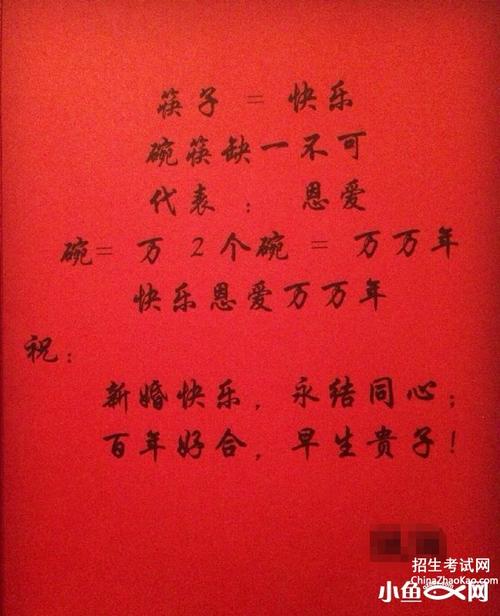 筷子 = 快乐
碗筷缺一不可
代表： 恩爱
碗= 万 2个碗 = 万万年
快乐恩爱万万年
祝：
新婚快乐，永结同心；
百年好合，早生贵子！
招生考试网
ChinaZhaoKao.com
小鱼网